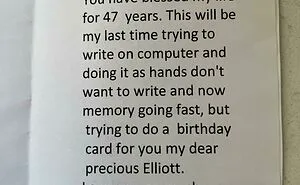 You have blessed my life
for 47 years. This will be
my last time trying to
write on computer and
doing it as hands don't
want to write and now
memory going fast, but
trying to do a birthday
card for you my dear
precious Elliott.